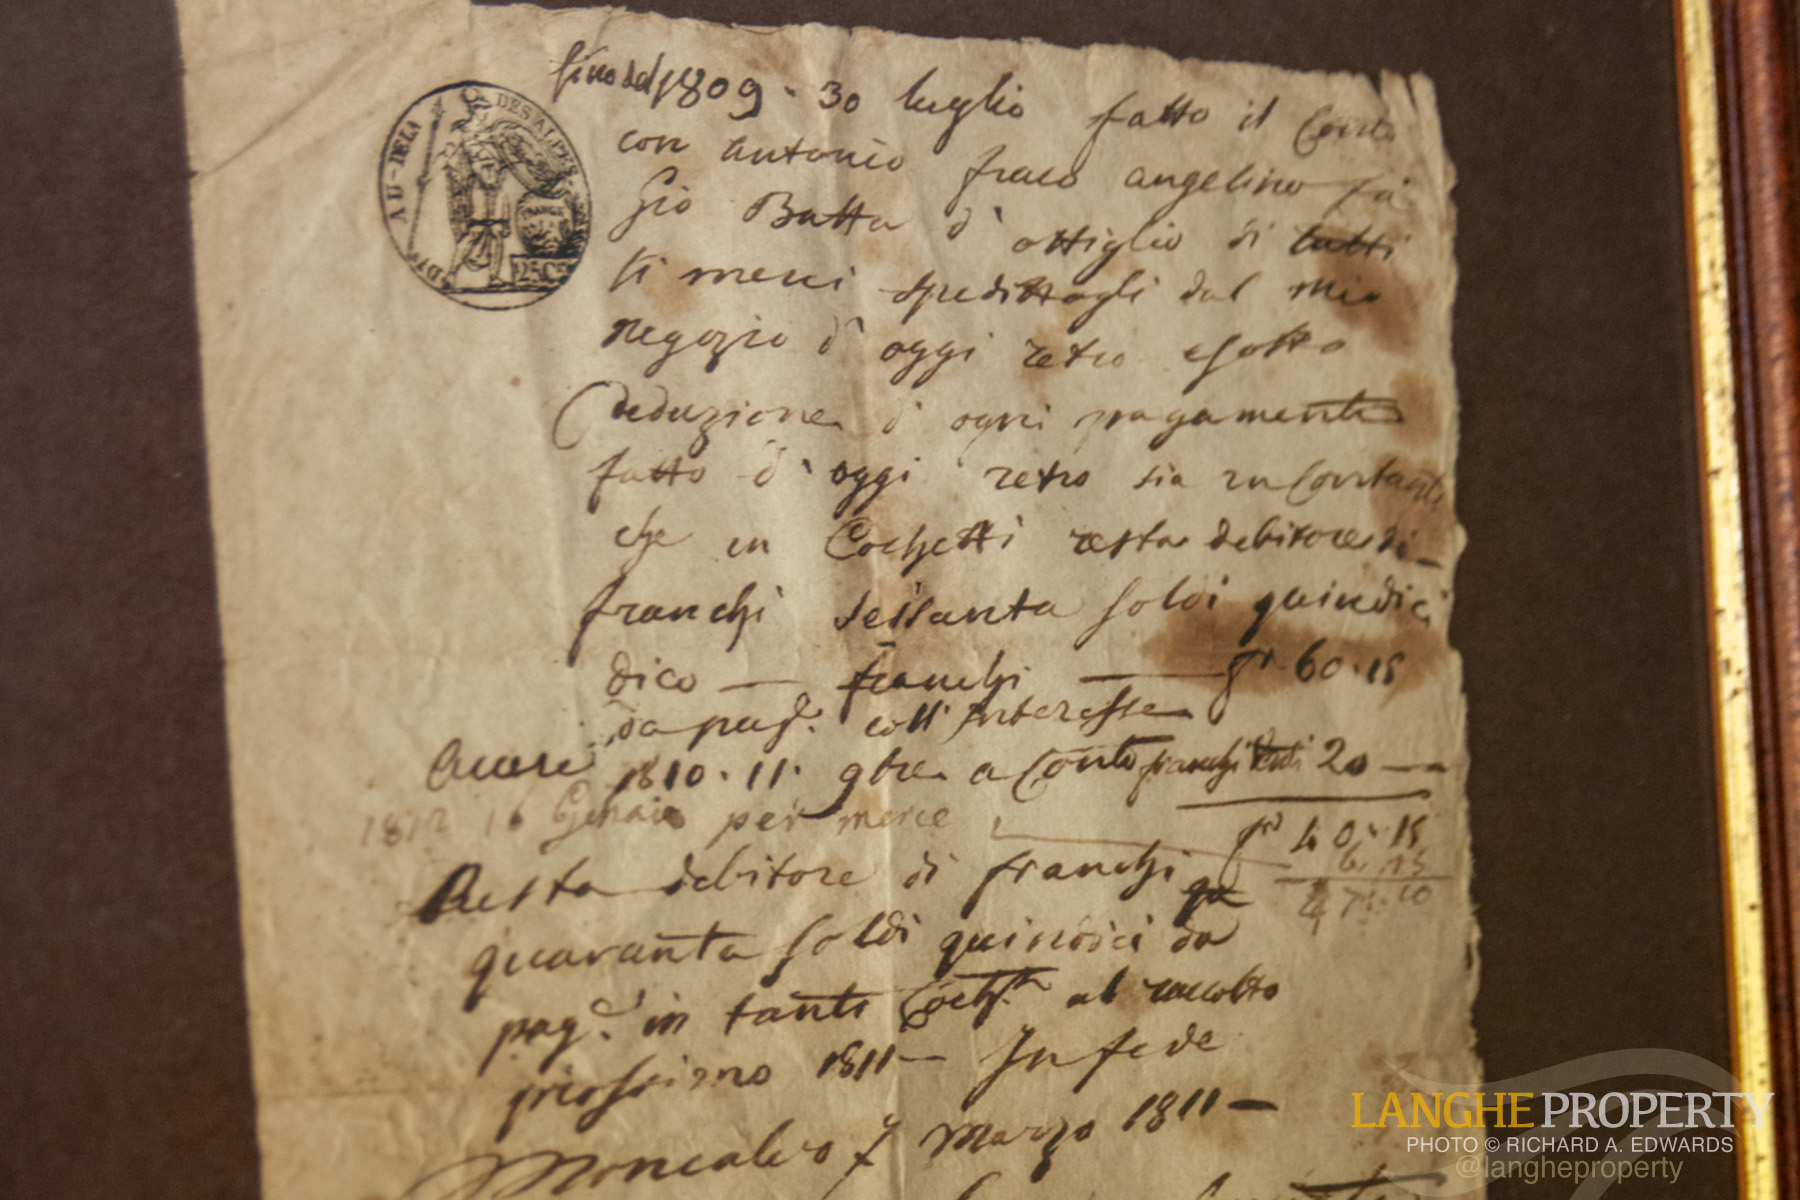 AU-DELA DES ALPES
fino del 1809 - 30 luglio fatto il Conto
con antonio fraco angelino fù
Gio Batta d' ottiglio di tutti
li merci spedittogli dal mio
negozio d' oggi retro e sotto
Deduzione d' ogni pagamento
fatto d' oggi retro sia in Contanti
che in Cochetti resta debitore di
franchi sessanta soldi quindici
dico — franchi — fr 60.15
da pag.e coll' Interesse
1810. 11. 9bre a Conto franchi venti 20 —
1812 16 Genaio per merce
fr 40.15
6.15
47.10
Resta debitore di franchi qu
quaranta soldi quindici da
pag.e in tanti Coch.tti al raccolto
prossimo 1811 — In fede
Moncalvo 7 Marzo 1811 —
LANGHE PROPERTY
PHOTO © RICHARD A. EDWARDS
@langheproperty